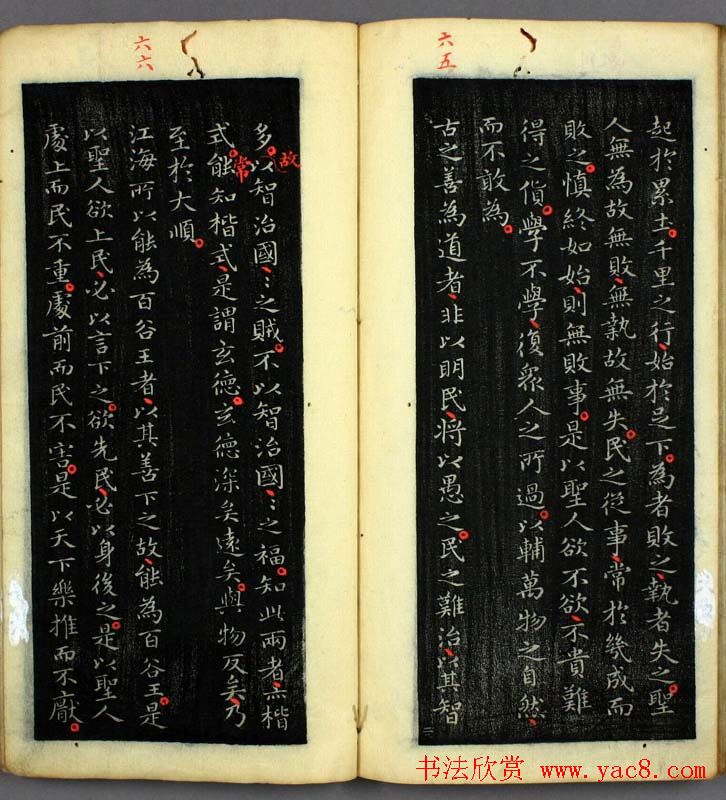 六五
起於累土千里之行始於足下為者敗之執者失之聖
人無為故無敗無執故無失民之從事常於幾成而
敗之慎終如始則無敗事是以聖人欲不欲不貴難
得之貨學不學復眾人之所過以輔萬物之自然
而不敢為
古之善為道者非以明民將以愚之民之難治以其智
六六
多以智治國〻之賊不以智治國〻之福知此兩者亦楷
故
式能知楷式是謂玄德玄德深矣遠矣與物反矣乃
常
至於大順
江海所以能為百谷王者以其善下之故能為百谷王是
以聖人欲上民必以言下之欲先民必以身後之是以聖人
處上而民不重處前而民不害是以天下樂推而不厭
书法欣赏 www.yac8.com